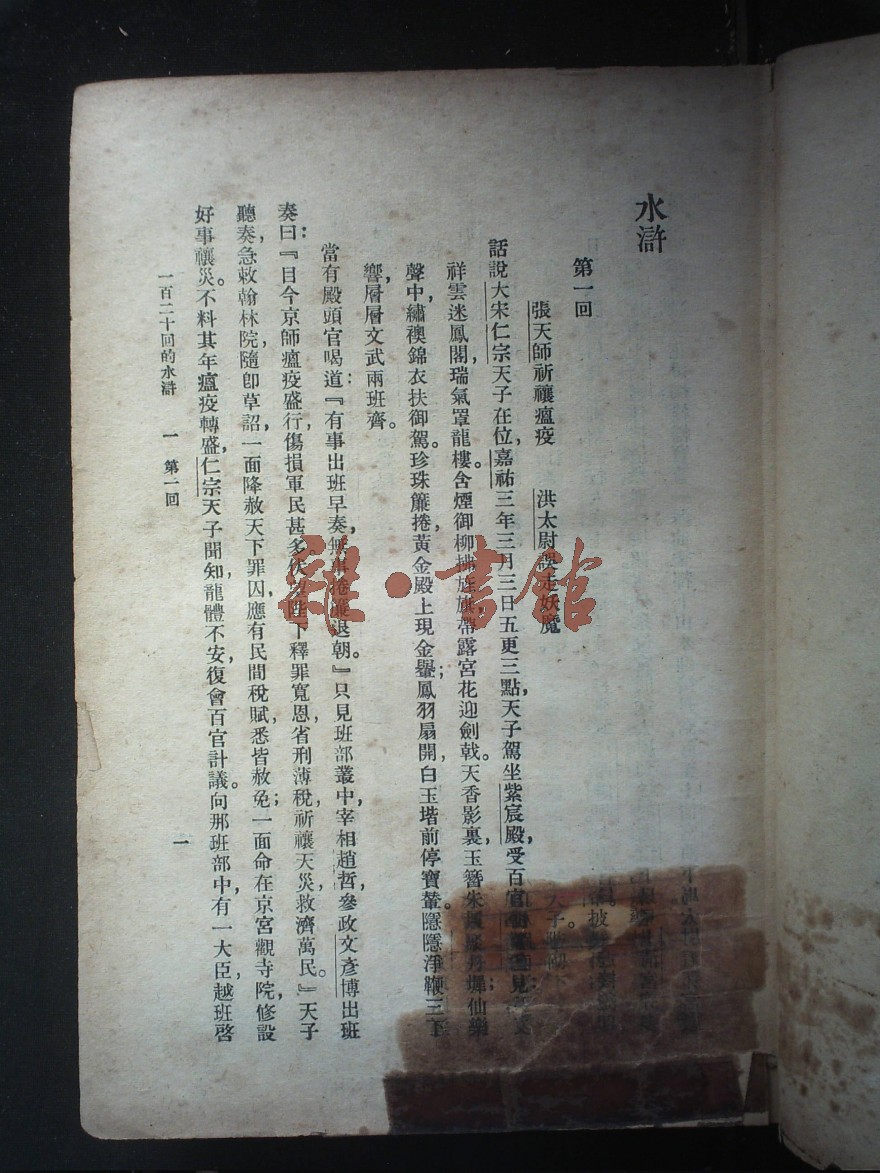 水滸
第一回
張天師祈禳瘟疫　洪太尉誤走妖魔
話說大宋仁宗天子在位，嘉祐三年三月三日五更三點，天子駕坐紫宸殿，受百官
祥雲迷鳳閣，瑞氣罩龍樓。含煙御柳拂旌旗，帶露宮花迎劍戟。天香影裏，玉簪朱履 丹墀；仙樂
聲中，繡襖錦衣扶御駕。珍珠簾捲，黃金殿上現金轝；鳳羽扇開，白玉堦前停寶輦。隱隱淨鞭三下
響，層層文武兩班齊。
當有殿頭官喝道：『有事出班早奏，無事捲簾退朝。』只見班部叢中，宰相趙哲，參政文彥博出班
奏曰：『目今京師瘟疫盛行，傷損軍民甚多。伏望陛下釋罪寬恩，省刑薄稅，祈禳天災，救濟萬民。』天子
聽奏，急敕翰林院隨卽草詔，一面降赦天下罪囚，應有民間稅賦，悉皆赦免；一面命在京宮觀寺院，修設
好事禳災。不料其年瘟疫轉盛，仁宗天子聞知，龍體不安，復會百官計議。向那班部中，有一大臣，越班啓
一百二十回的水滸　一　第一回
一
雜·書館